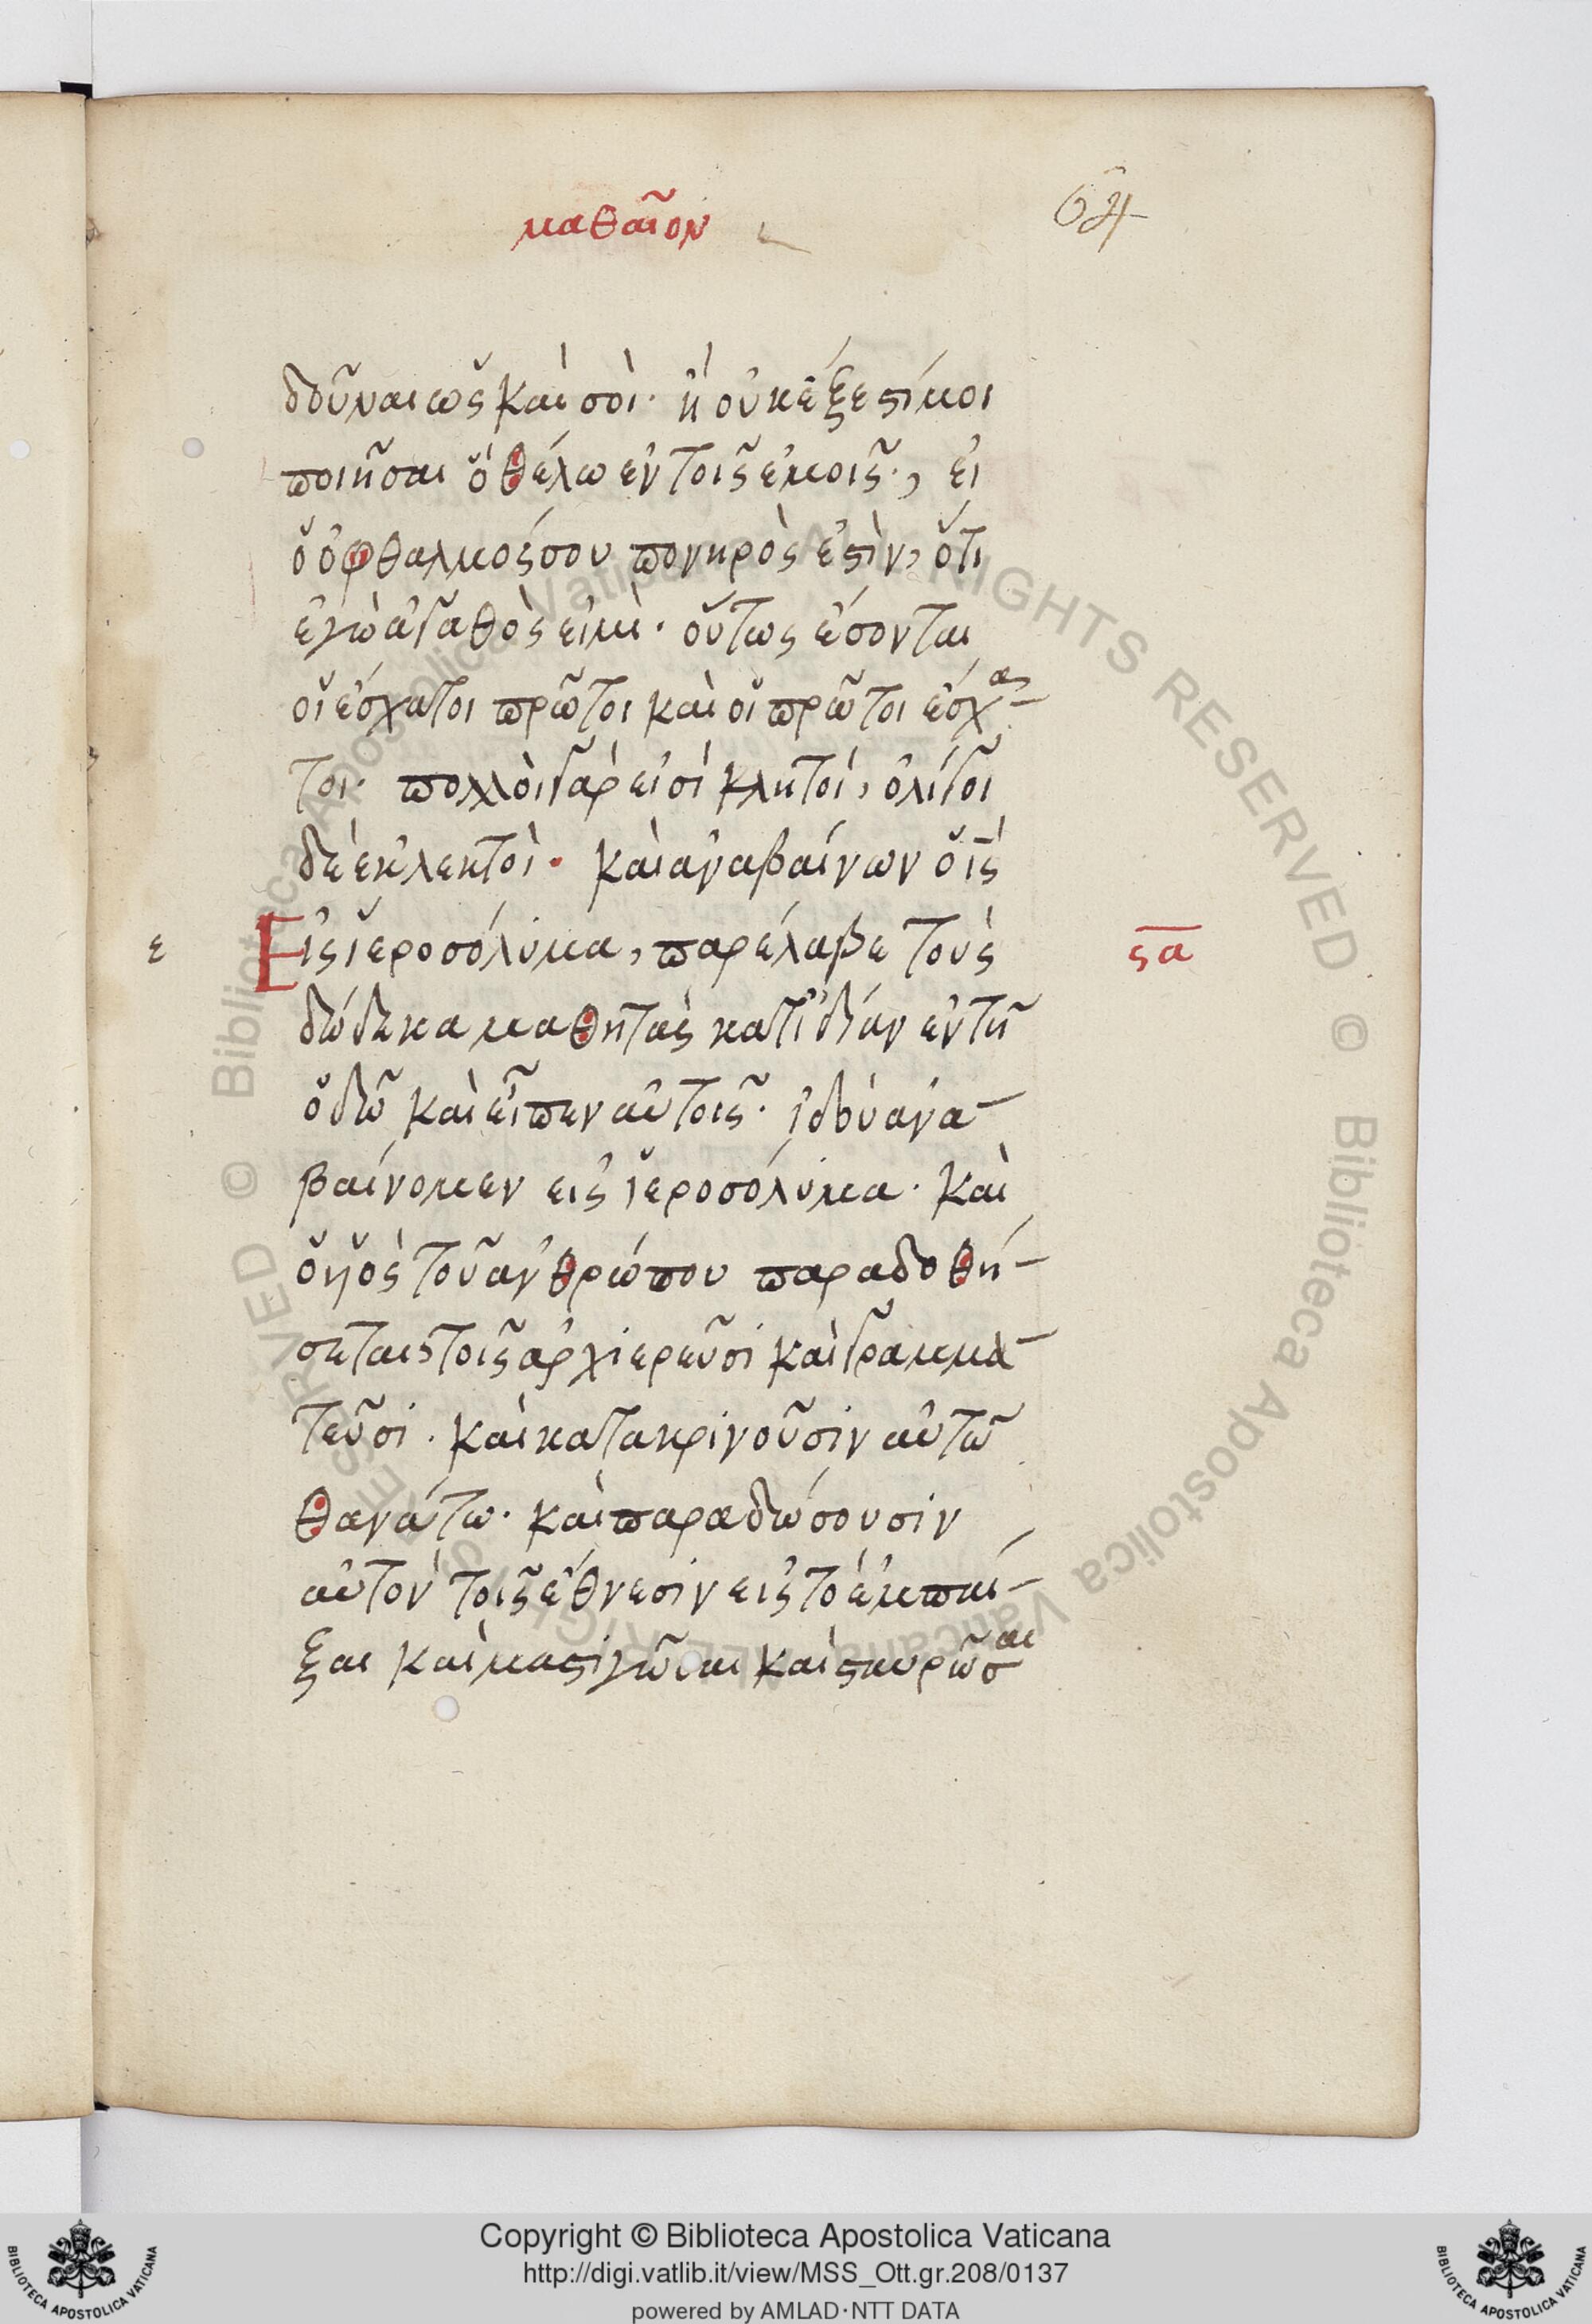 ματθαῖον
64
δοῦναι ὡς καὶ σοὶ· ἢ οὐκ ἔξεστί μοι
ποιῆσαι ὃ θέλω ἐν τοῖς ἐμοῖς·, εἰ
ὁ ὀφθαλμός σου πονηρὸς ἐστὶν, ὅτι
ἐγὼ ἀγαθὸς εἰμὶ· οὕτως ἔσονται
οἱ ἔσχατοι πρῶτοι καὶ οἱ πρῶτοι ἔσχα-
τοι· πολλοὶ γάρ εἰσί κλητοί, ὀλίγοι
δὲ ἐκλεκτοὶ· καὶ ἀναβαίνων ὁ ις
ε Εἰς ἱεροσόλυμα, παρέλαβε τοὺς ϛα
δώδεκα μαθητὰς κατ ἰδίαν ἐν τῆ
ὁδῶ καὶ εἶπεν αὐτοῖς· ἰδοὺ ἀνα-
βαίνομεν εἰς ἱεροσόλυμα· καὶ
ὁ υἱὸς τοῦ ἀνθρώπου παραδοθή-
σεται, τοῖς ἀρχιερεῦσι καὶ γραμμα-
τεῦσι· καὶ κατακρινοῦσιν αὐτῶ
θανάτω· καὶ παραδώσουσιν
αὐτὸν τοῖς ἔθνεσιν εἰς τὸ ἐμπαί-
ξαι καὶ μαστιγῶσαι καὶ σταυρῶσαι
Copyright © Biblioteca Apostolica Vaticana
http://digi.vatlib.it/view/MSS_Ott.gr.208/0137
powered by AMLAD·NTT DATA
BIBLIOTECA APOSTOLICA VATICANA
BIBLIOTECA APOSTOLICA VATICANA
Biblioteca Apostolica Vaticana ALL RIGHTS RESERVED © Biblioteca Apostolica Vaticana ALL RIGHTS RESERVED ©